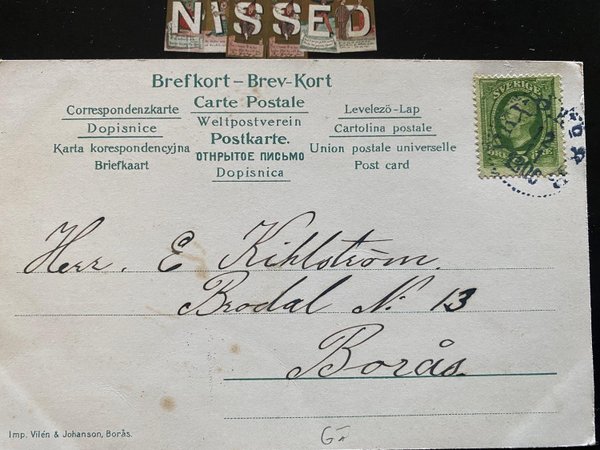 NISSED
Brefkort – Brev-Kort
Correspondenzkarte Carte Postale Levelezö-Lap
Dopisnice Weltpostverein Cartolina postale
Karta korespondencyjna Postkarte. Union postale universelle
Briefkaart ОТКРЫТОЕ ПИСЬМО Post card
Dopisnica
SVERIGE
Herr. E Kihlström.
Brodal N: 13
Borås
Imp. Vilén & Johanson, Borås.